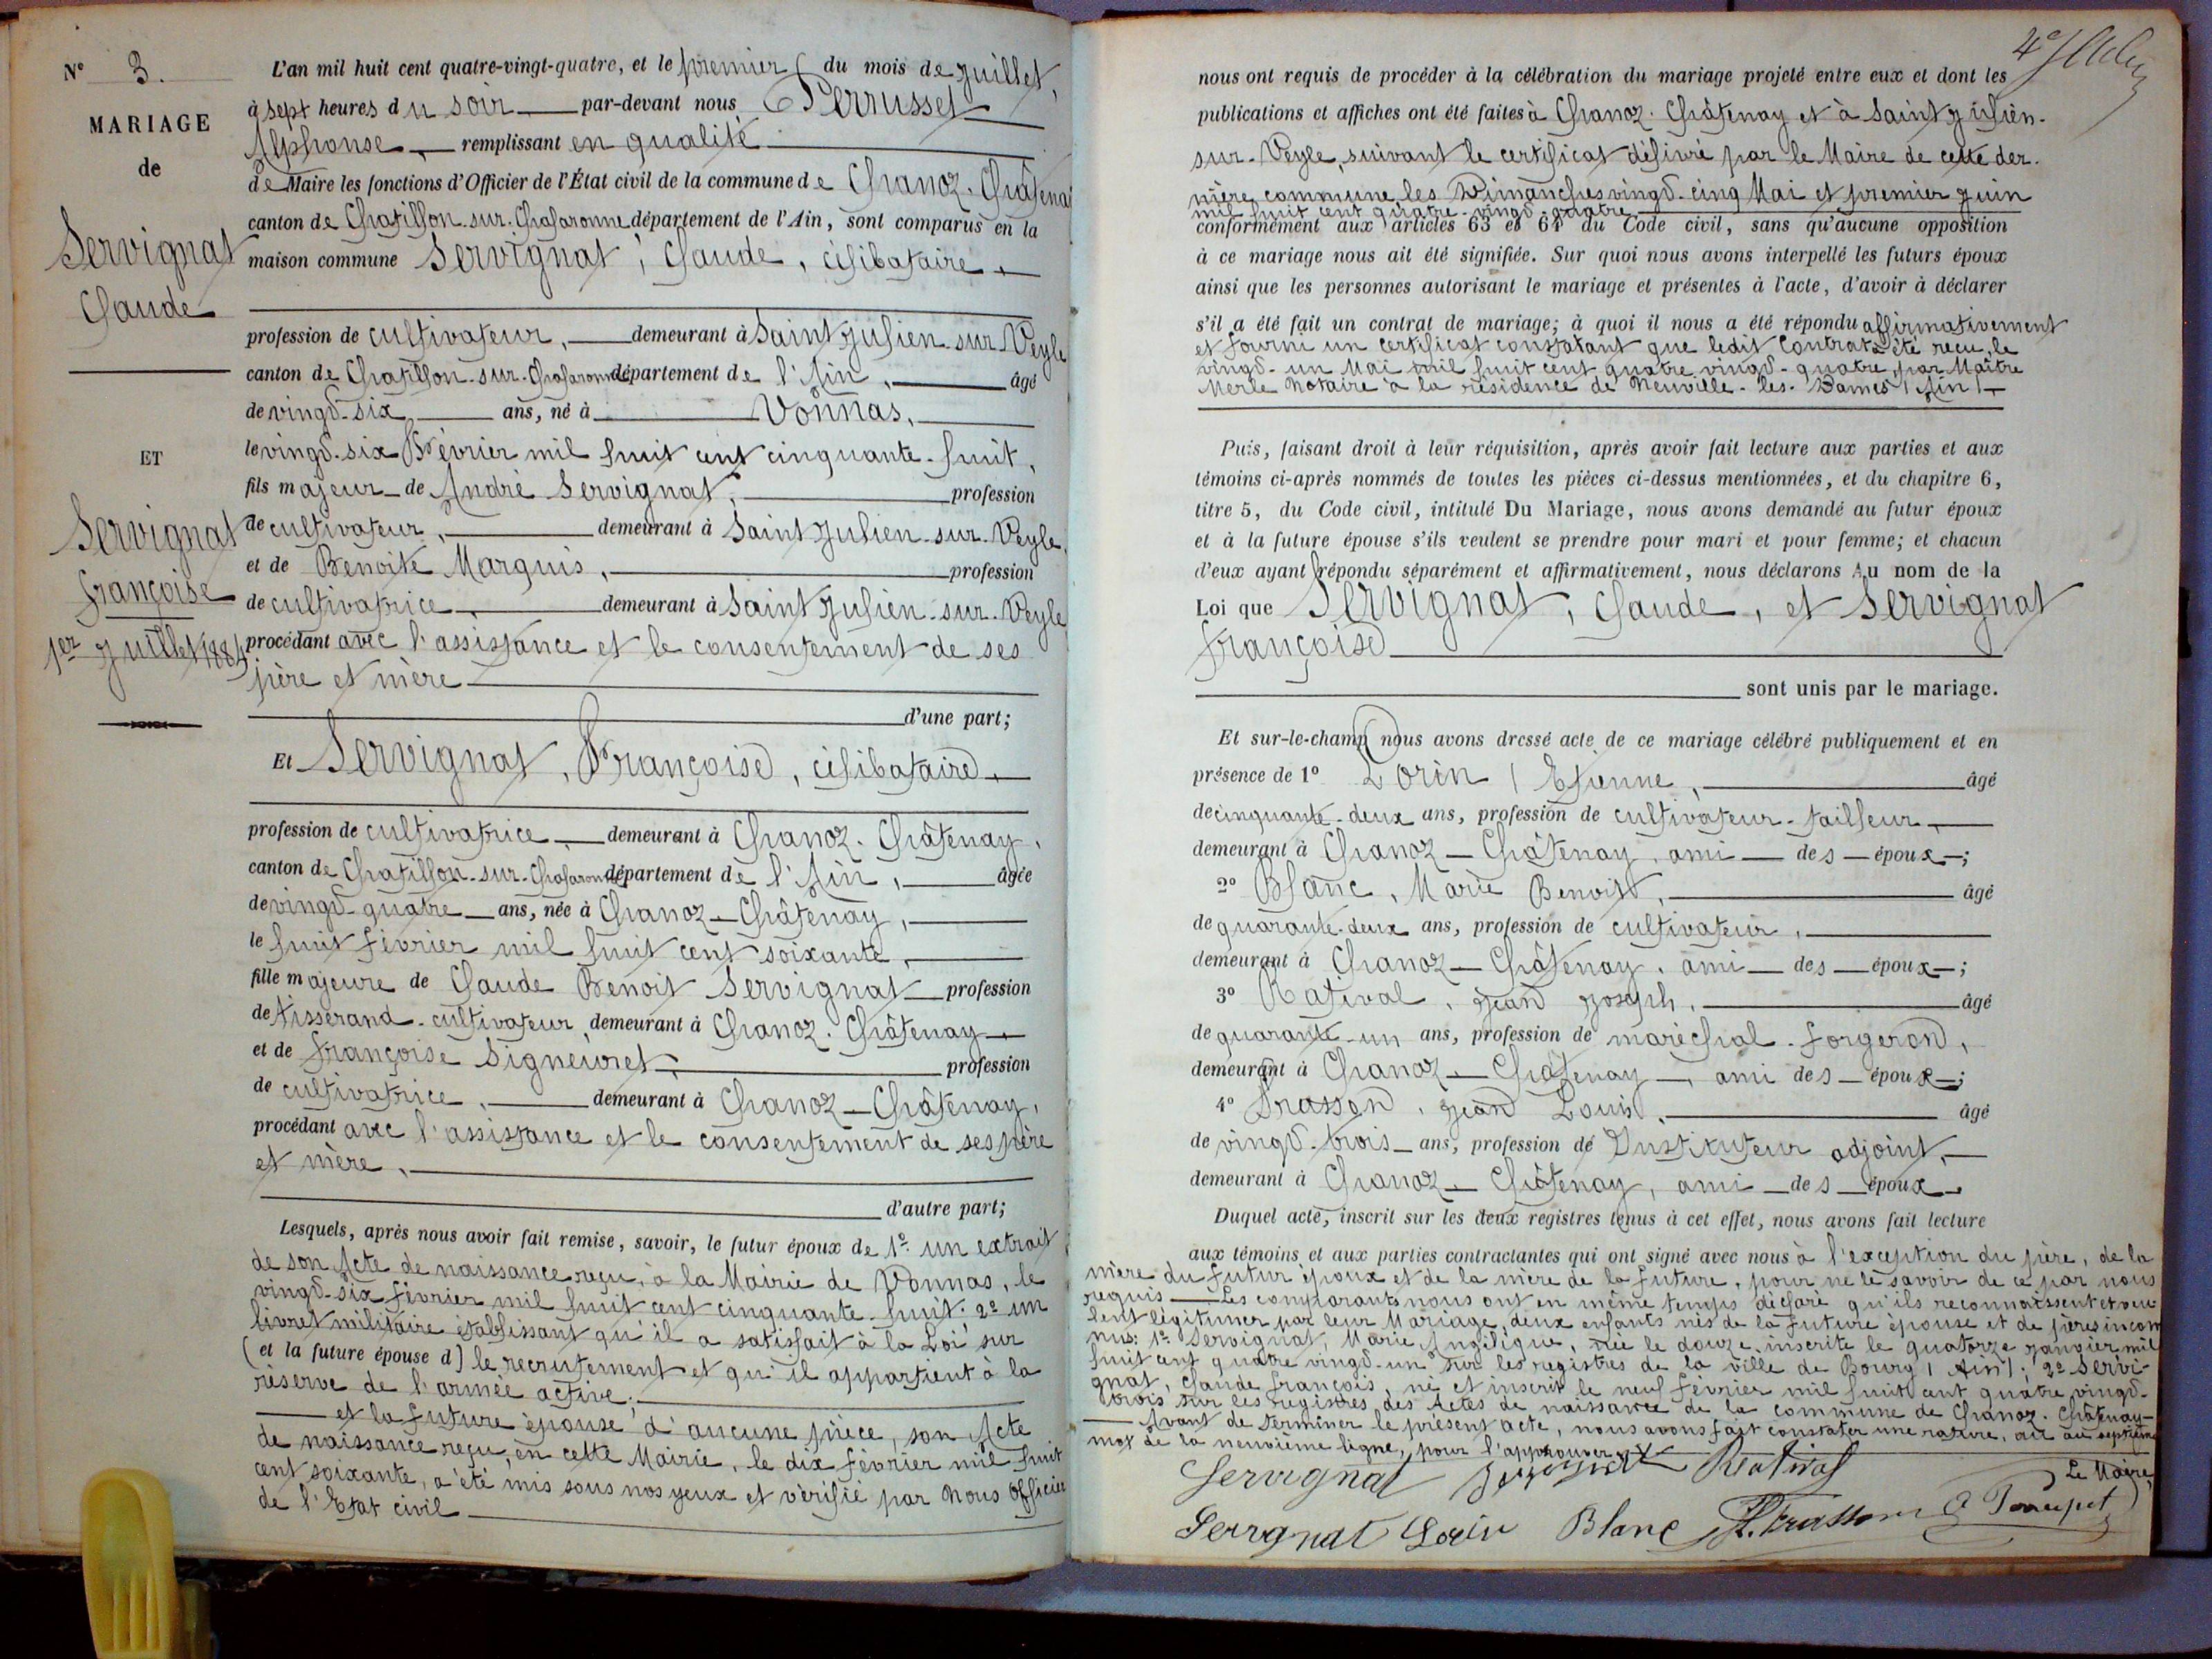 N° 3.
MARIAGE
de
Servignat
Claude
ET
Servignat
françoise
1er Juillet 1884
L'an mil huit cent quatre-vingt-quatre, et le premier du mois de Juillet,
à sept heures du soir par-devant nous Perrusset
Alphonse remplissant en qualité
de Maire les fonctions d'Officier de l'État civil de la commune de Chanoz-Châtenay
canton de Chatillon-sur-Chalaronne département de l'Ain, sont comparus en la
maison commune Servignat, Claude, célibataire
profession de cultivateur, demeurant à Saint Julien-sur-Veyle
canton de Chatillon-sur-Chalaronne département de l'Ain, âgé
de vingt-six ans, né à Vonnas,
le vingt-six Février mil huit cent cinquante-huit,
fils majeur de André Servignat, profession
de cultivateur, demeurant à Saint Julien-sur-Veyle,
et de Benoite Marguis, profession
de cultivatrice demeurant à Saint Julien-sur-Veyle
procédant avec l'assistance et le consentement de ses
père et mère
d'une part;
Et Servignat, Françoise, célibataire
profession de cultivatrice demeurant à Chanoz-Châtenay,
canton de Chatillon-sur-Chalaronne département de l'Ain, âgée
de vingt-quatre ans, née à Chanoz-Châtenay,
le huit février mil huit cent soixante,
fille majeure de Claude Benoit Servignat profession
de tisserand-cultivateur, demeurant à Chanoz-Châtenay
et de françoise Signeuret, profession
de cultivatrice, demeurant à Chanoz-Châtenay,
procédant avec l'assistance et le consentement de ses père
et mère,
d'autre part;
Lesquels, après nous avoir fait remise, savoir, le futur époux de 1° un extrait
de son Acte de naissance reçu, à la Mairie de Vonnas, le
vingt-six février mil huit cent cinquante-huit: 2° un
livret militaire établissant qu'il a satisfait à la Loi sur
(et la future épouse d) le recrutement et qu'il appartient à la
réserve de l'armée active.
et la future épouse d'aucune pièce, son Acte
de naissance reçu, en cette Mairie, le dix février mil huit
cent soixante, a été mis sous nos yeux et vérifié par Nous Officier
de l'Etat civil
nous ont requis de procéder à la célébration du mariage projeté entre eux et dont les
publications et affiches ont été faites à Chanoz-Châtenay et à Saint Julien-
sur-Veyle, suivant le certificat délivré par le Maire de cette der-
nière commune, les Dimanches vingt-cinq Mai et premier Juin
mil huit cent quatre-vingt-quatre
conformément aux articles 63 et 64 du Code civil, sans qu'aucune opposition
à ce mariage nous ait été signifiée. Sur quoi nous avons interpellé les futurs époux
ainsi que les personnes autorisant le mariage et présentes à l'acte, d'avoir à déclarer
s'il a été fait un contrat de mariage; à quoi il nous a été répondu affirmativement
et fourni un certificat constatant que ledit Contrat a été reçu, le
vingt-un Mai mil huit cent quatre vingt-quatre, par Maître
Merle Notaire à la résidence de Neuville-les-Dames (Ain)
Puis, faisant droit à leur réquisition, après avoir fait lecture aux parties et aux
témoins ci-après nommés de toutes les pièces ci-dessus mentionnées, et du chapitre 6,
titre 5, du Code civil, intitulé Du Mariage, nous avons demandé au futur époux
et à la future épouse s'ils veulent se prendre pour mari et pour femme; et chacun
d'eux ayant répondu séparément et affirmativement, nous déclarons Au nom de la
Loi que Servignat, Claude, et Servignat
françoise
sont unis par le mariage.
Et sur-le-champ nous avons dressé acte de ce mariage célébré publiquement et en
présence de 1° Lorin, Etienne, âgé
de cinquante-deux ans, profession de cultivateur-tailleur,
demeurant à Chanoz-Châtenay, ami des époux;
2° Blanc, Marie Benoist, âgé
de quarante-deux ans, profession de cultivateur,
demeurant à Chanoz-Châtenay, ami des époux;
3° Rativat, Jean Joseph, âgé
de quarante-un ans, profession de maréchal-forgeron,
demeurant à Chanoz-Châtenay, ami des époux;
4° Frasson, Jean Louis, âgé
de vingt-trois ans, profession de Instituteur adjoint,
demeurant à Chanoz-Châtenay, ami des époux.
Duquel acte, inscrit sur les deux registres tenus à cet effet, nous avons fait lecture
aux témoins et aux parties contractantes qui ont signé avec nous à l'exception du père, de la
mère du futur époux et de la mère de la future, pour ne le savoir de ce par nous
requis Les comparants nous ont en même temps déclaré qu'ils reconnaissent et veu
lent légitimer par leur Mariage, deux enfants nés de la future épouse et de pères incon
nus: 1° Servignat, Marie Angélique, née le douze, inscrite le quatorze janvier mil
huit cent quatre vingt-un sur les registres de la ville de Bourg (Ain); 2° Servi-
gnat, Claude françois, né et inscrit le neuf février mil huit cent quatre vingt-
trois sur les registres des Actes de naissance de la commune de Chanoz-Châtenay-
Avant de terminer le présent acte, nous avons fait constater une rature, au septième
mot de la neuvième ligne, pour l'approuver
Servignat Rativat
Le Maire,
Servignat Lorin Blanc Frasson